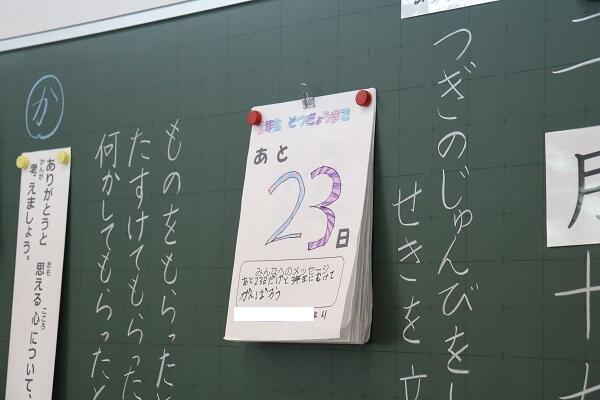 月
十七
つぎのじゅんびをし
せきを立
年生 そつぎょうまで
あと
23日
みんなへのメッセージ
あと23日だけど3年生にむけて
がんばろう
より
ものをもらった
たすけてもらった
何かしてもらったと
か
ありがとうと 思える心について、
考えましょう。